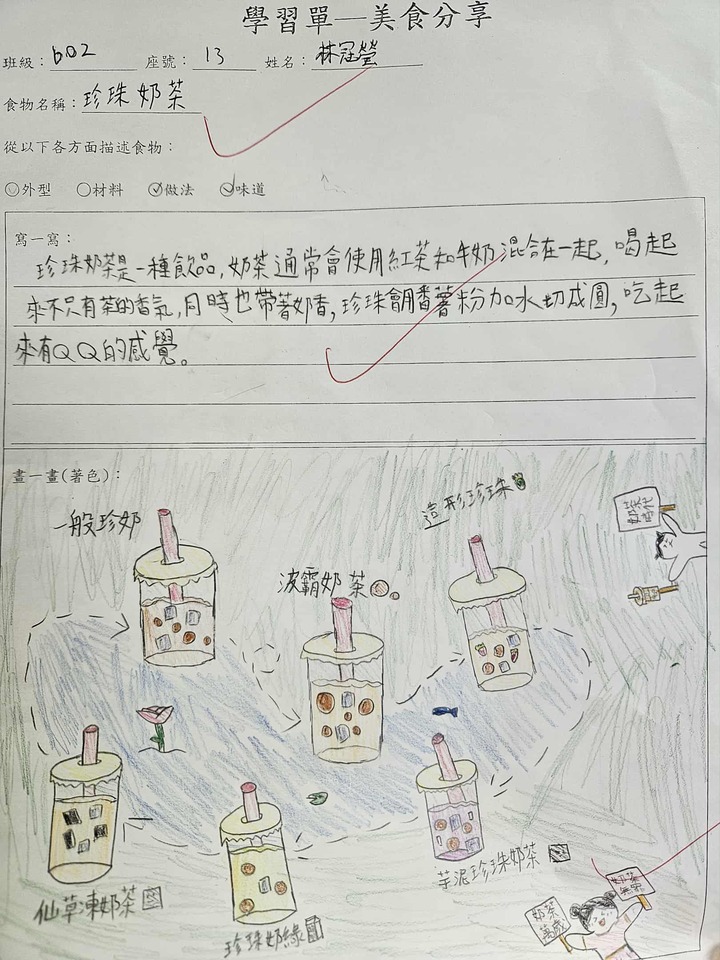 學習單—美食分享
班級：602 座號：13 姓名：林冠瑩
食物名稱：珍珠奶茶
從以下各方面描述食物：
○外型 ○材料 ✓做法 ✓味道
寫一寫：
珍珠奶茶是一種飲品，奶茶通常會使用紅茶和牛奶混合在一起，喝起
來不只有茶的香氣，同時也帶著奶香，珍珠會用番薯粉加水切成圓，吃起
來有QQ的感覺。
畫一畫(著色)：
一般珍奶
造形珍珠
奶茶
時代
波霸奶茶
仙草凍奶茶
珍珠奶綠
芋泥珍珠奶茶
奶茶
無罪
奶茶
萬歲